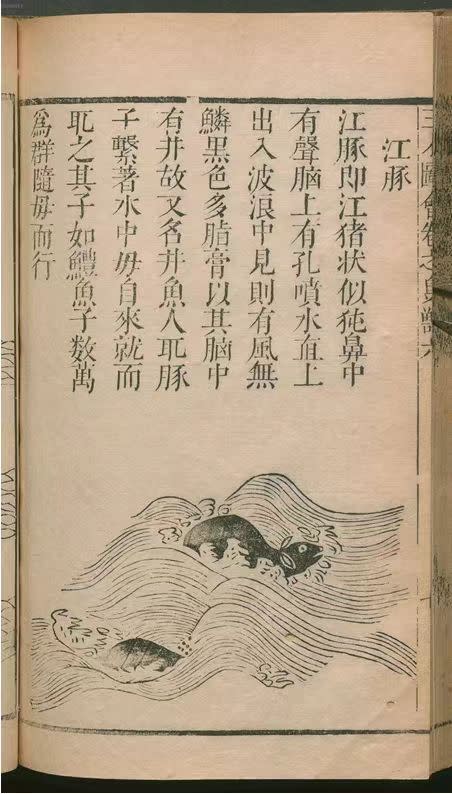 三才圖會卷之鳥獸六
江豚
江豚即江猪狀似㹠鼻中
有聲腦上有孔噴水直上
出入波浪中見則有風無
鱗黑色多脂膏以其腦中
有井故又名井魚人取豚
子繫著水中母自來就而
取之其子如鱧魚子数萬
為群隨母而行